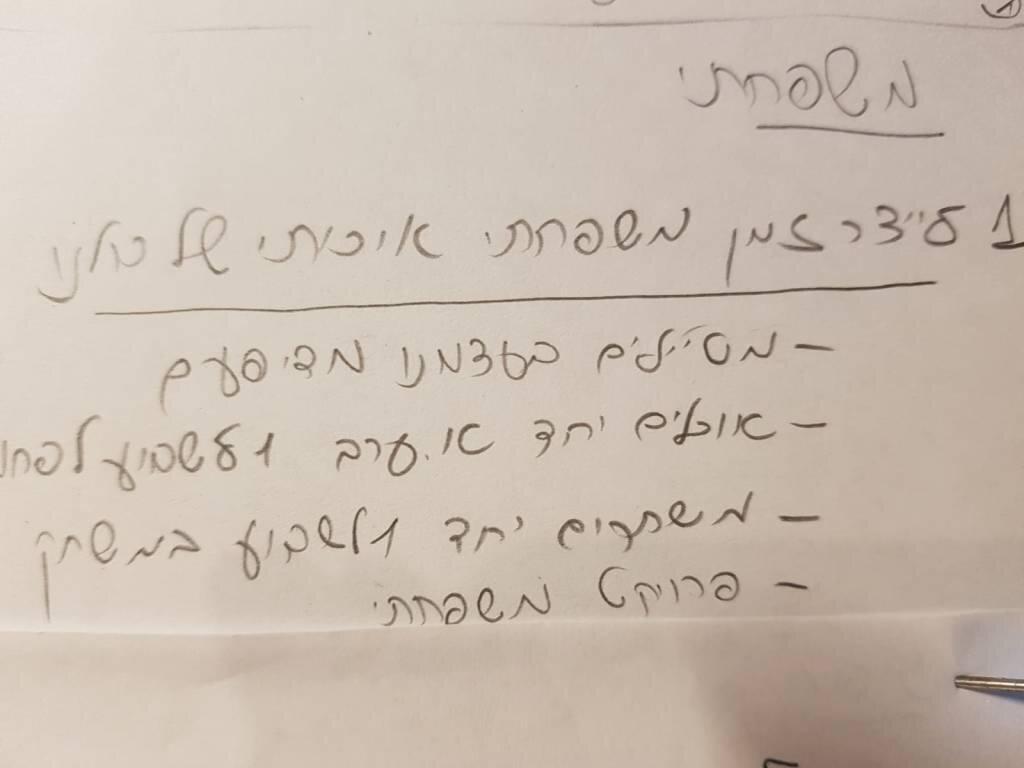 משפחתי
1 לייצר זמן משפחתי איכותי של כולנו
- מטיילים בעצמנו מדי פעם
- אוכלים יחד א. ערב 1 לשבוע לפחו
- משחקים יחד 1 לשבוע במשחק
- פרויקט משפחתי